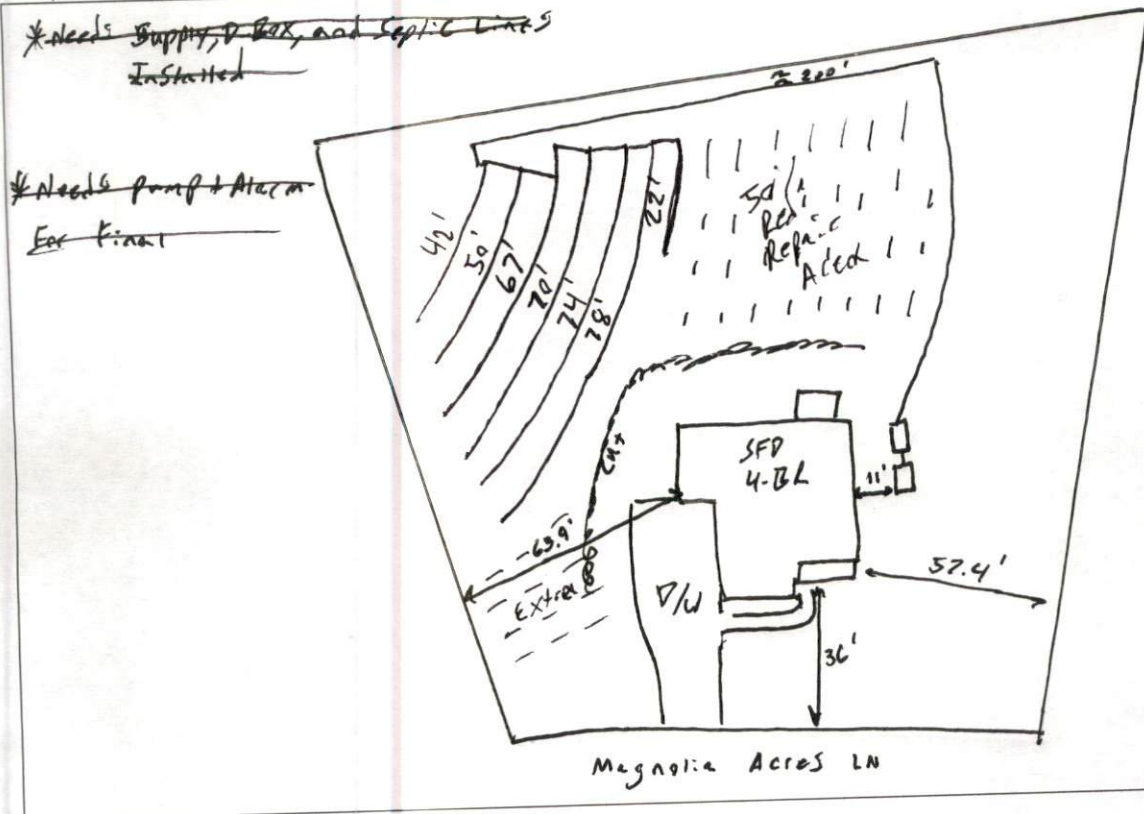 *Needs Supply, D-Box, and Septic Lines
Installed
*Needs Pump & Alarm
For Final
≈ 200'
42'
50'
67'
70'
74'
78'
22'
Repair
Area
SFD
4-BR
11'
63.9'
Extra
D/W
57.4'
36'
Magnolia Acres LN